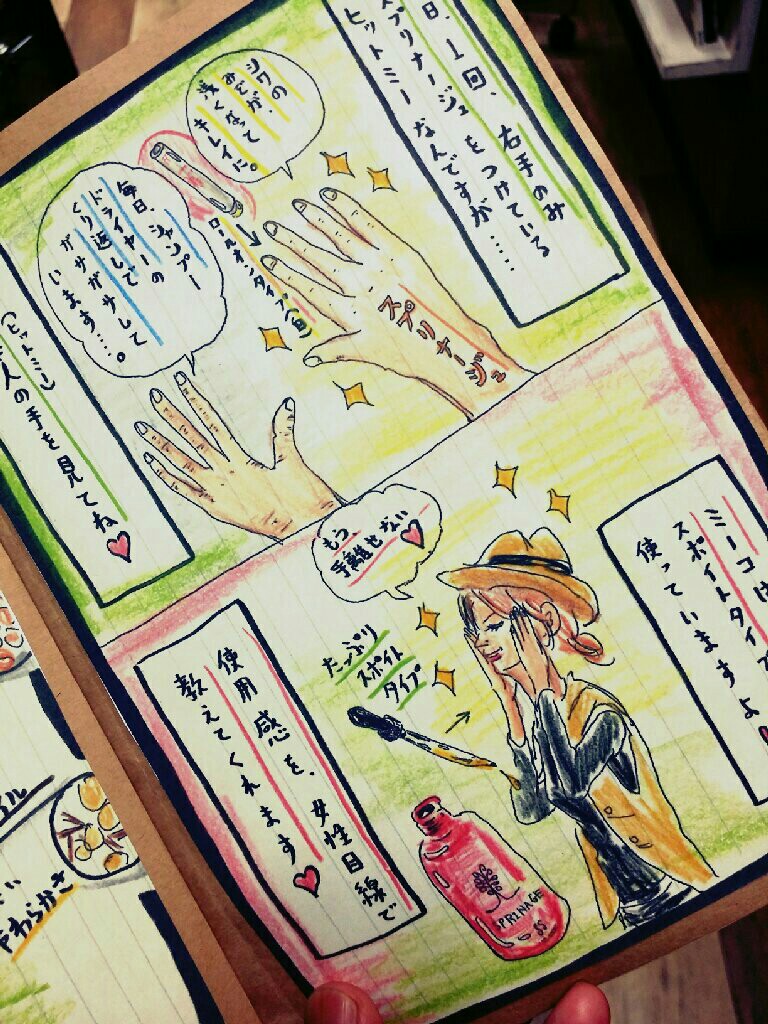 日、1回、右手のみ
スプリナージュをつけている
ヒットミーなんですが……
シワの
みぞが、
浅くなって
キレイに。
ロールオンタイプ(白)
スプリナージュ
毎日、シャンプー
ドライヤーの
くり返しで
ガサガサして
います……。
(ヒットミー)
人の手を見てね♥
ミーコは
スポイトタイプ
使っていますよ
もう、
手離せない♥
たっぷり
スポイト
タイプ
PRINAGE
使用感を、女性目線で
教えてくれます♥
ル
やわらかさ